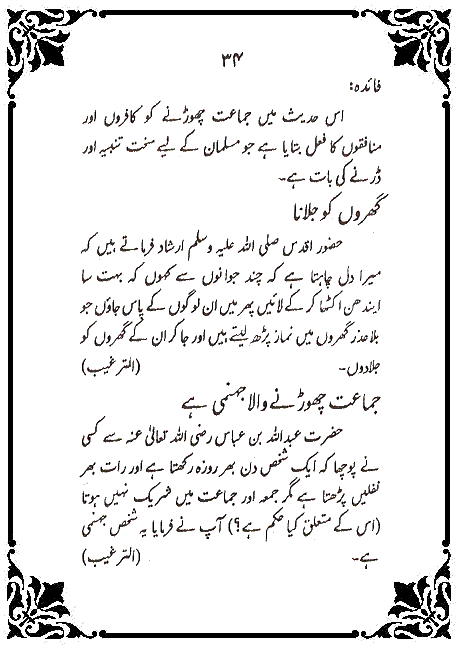 ۳۴
فائدہ:
اس حدیث میں جماعت چھوڑنے کو کافروں اور
منافقوں کا فعل بتایا ہے جو مسلمان کے لیے سخت تنبیہ اور
ڈرنے کی بات ہے۔
گھروں کو جلانا
حضور اقدس صلی اللہ علیہ وسلم ارشاد فرماتے ہیں کہ
میرا دل چاہتا ہے کہ چند جوانوں سے کہوں کہ بہت سا
ایندھن اکٹھا کر کے لائیں پھر میں ان لوگوں کے پاس جاؤں جو
بلا عذر گھروں میں نماز پڑھ لیتے ہیں اور جا کر ان کے گھروں کو
جلادوں۔ (الترغیب)
جماعت چھوڑنے والا جہنمی ہے
حضرت عبداللہ بن عباس رضی اللہ تعالیٰ عنہ سے کسی
نے پوچھا کہ ایک شخص دن بھر روزہ رکھتا ہے اور رات بھر
نفلیں پڑھتا ہے مگر جمعہ اور جماعت میں شریک نہیں ہوتا
(اس کے متعلق کیا حکم ہے؟) آپ نے فرمایا یہ شخص جہنمی
ہے۔ (الترغیب)